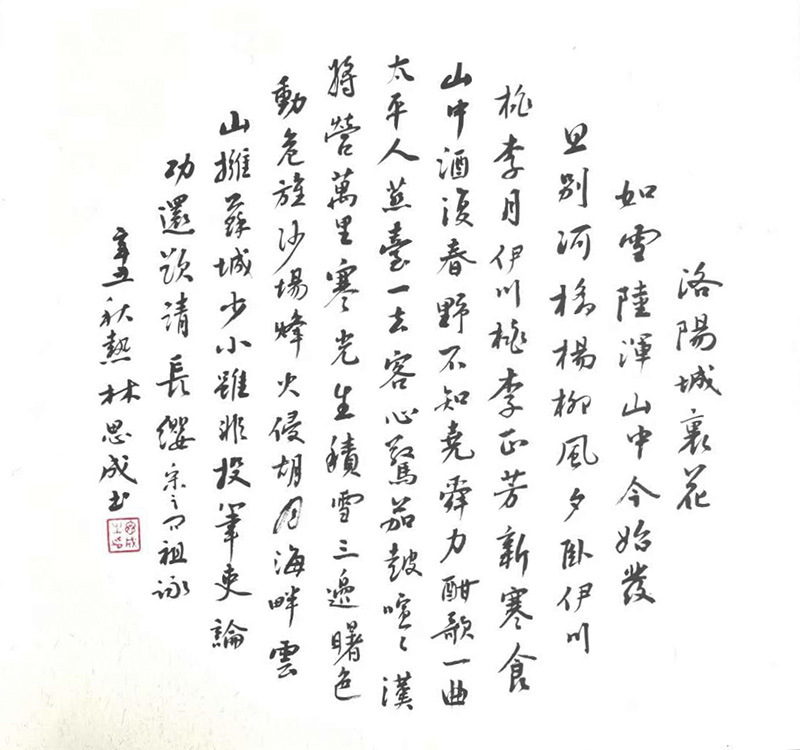 洛陽城裏花
如雪陸渾山中今始發
旦別河橋楊柳風夕臥伊川
桃李月伊川桃李正芳新寒食
山中酒復春野不知堯舜力酣歌一曲
太平人燕臺一去客心驚笳鼓喧〻漢
將營萬里寒光生積雪三邊曙色
動危旌沙場烽火侵胡月海畔雲
山擁薊城少小雖非投筆吏論
功還欲請長纓宋之问祖詠
辛丑秋熱林思成书